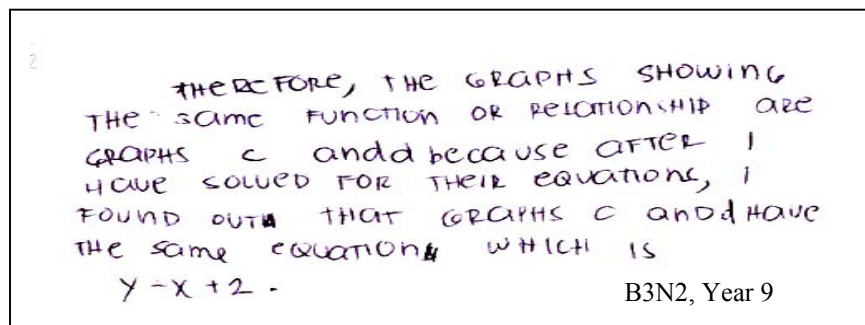 THEREFORE, THE GRAPHS SHOWING
THE SAME FUNCTION OR RELATIONSHIP ARE
GRAPHS C and d because AFTER I
HAVE SOLVED FOR THEIR EQUATIONS, I
FOUND OUT THAT GRAPHS C and d HAVE
THE SAME EQUATION WHICH IS
y - x + 2 .
B3N2, Year 9